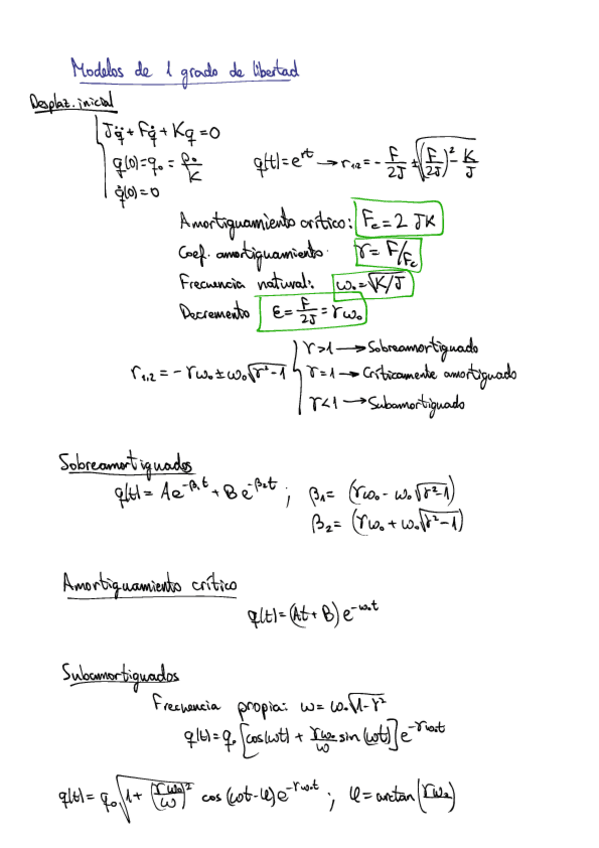 Modelos de 1 grado de libertad
Desplaz. inicial
Jq̈ + Fq̇ + Kq = 0
q(0) = q₀ = P₀/K    q(t) = e^{rt} → r₁,₂ = -F/2J ± √((F/2J)² - K/J)
q̇(0) = 0
Amortiguamiento crítico: F_c = 2 JK
Coef. amortiguamiento: γ = F/F_c
Frecuencia natural: ω₀ = √(K/J)
Decremento ε = F/2J = γω₀
γ > 1 → Sobreamortiguado
r₁,₂ = -γω₀ ± ω₀√(γ² - 1)    γ = 1 → Críticamente amortiguado
γ < 1 → Subamortiguado
Sobreamortiguados
q(t) = Ae^{-β₁t} + Be^{-β₂t} ; β₁ = (γω₀ - ω₀√(γ² - 1))
β₂ = (γω₀ + ω₀√(γ² - 1))
Amortiguamiento crítico
q(t) = (At + B) e^{-ω₀t}
Subamortiguados
Frecuencia propia: ω = ω₀√(1 - γ²)
q(t) = q₀ [cos(ωt) + γω₀/ω sin(ωt)] e^{-γω₀t}
q(t) = q₀ √(1 + (γω₀/ω)²) cos (ωt - φ) e^{-γω₀t} ; φ = arctan (γω₀)